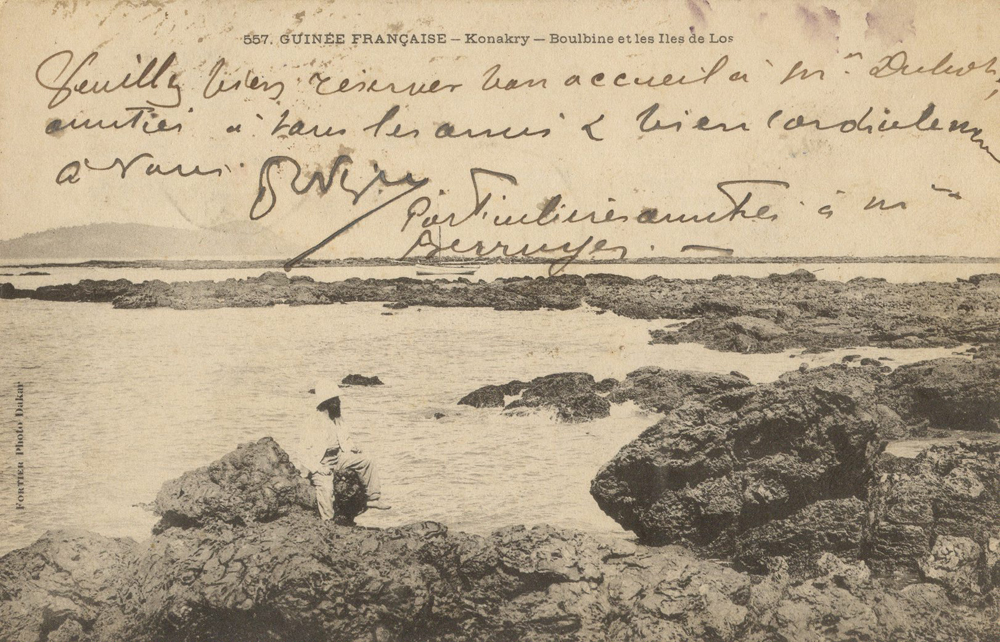 557. GUINÉE FRANÇAISE – Konakry – Boulbine et les Iles de Los
Veuillez bien réserver bon accueil à Mr
amitiés à tous les amis & bien cordialement
à vous
Particulières amitiés à Mr
FORTIER PHOTO DAKAR